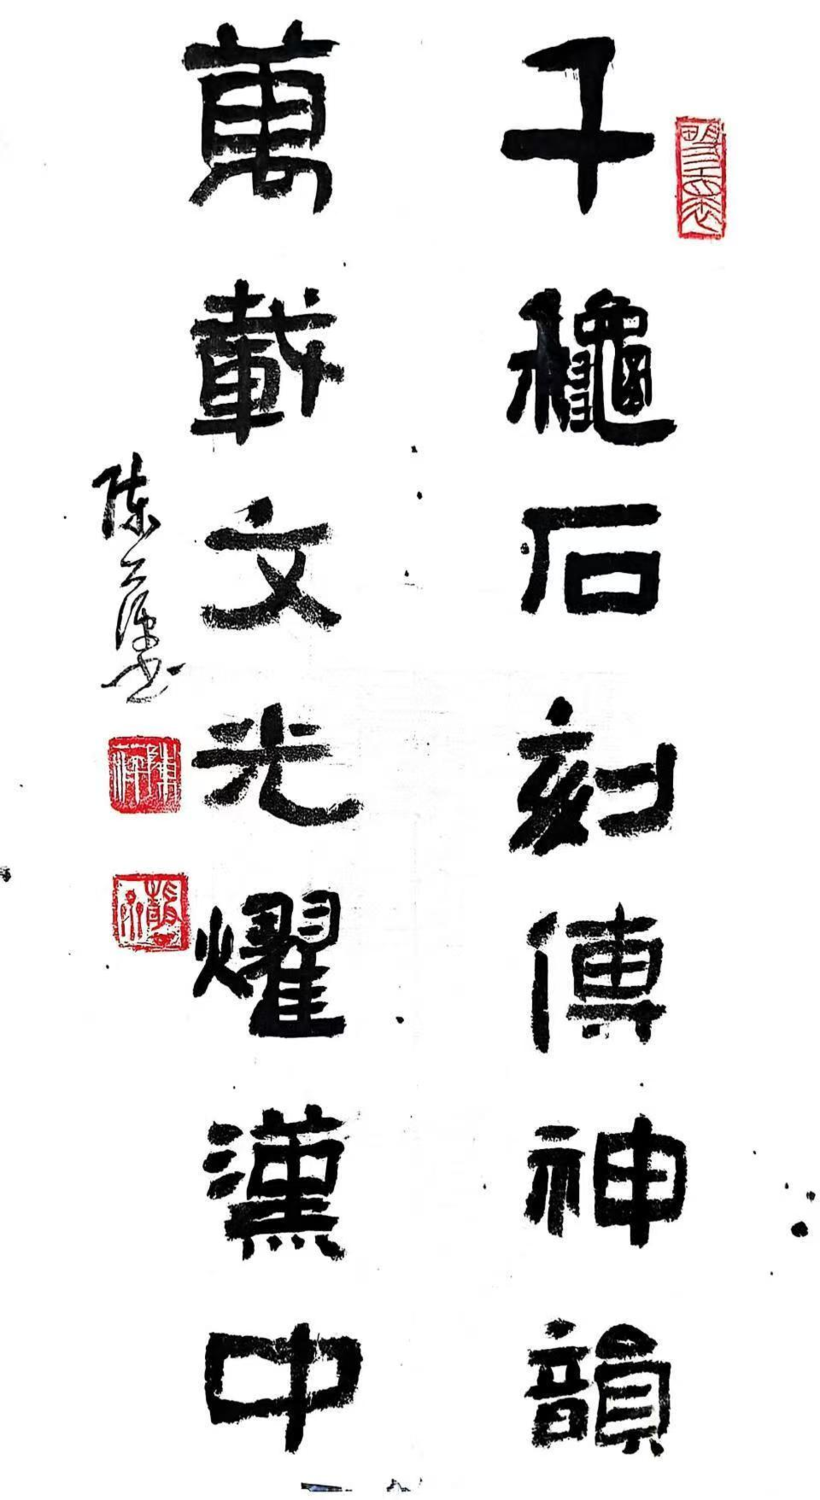 千龝石刻傳神韻
萬載文光耀漢中
陈